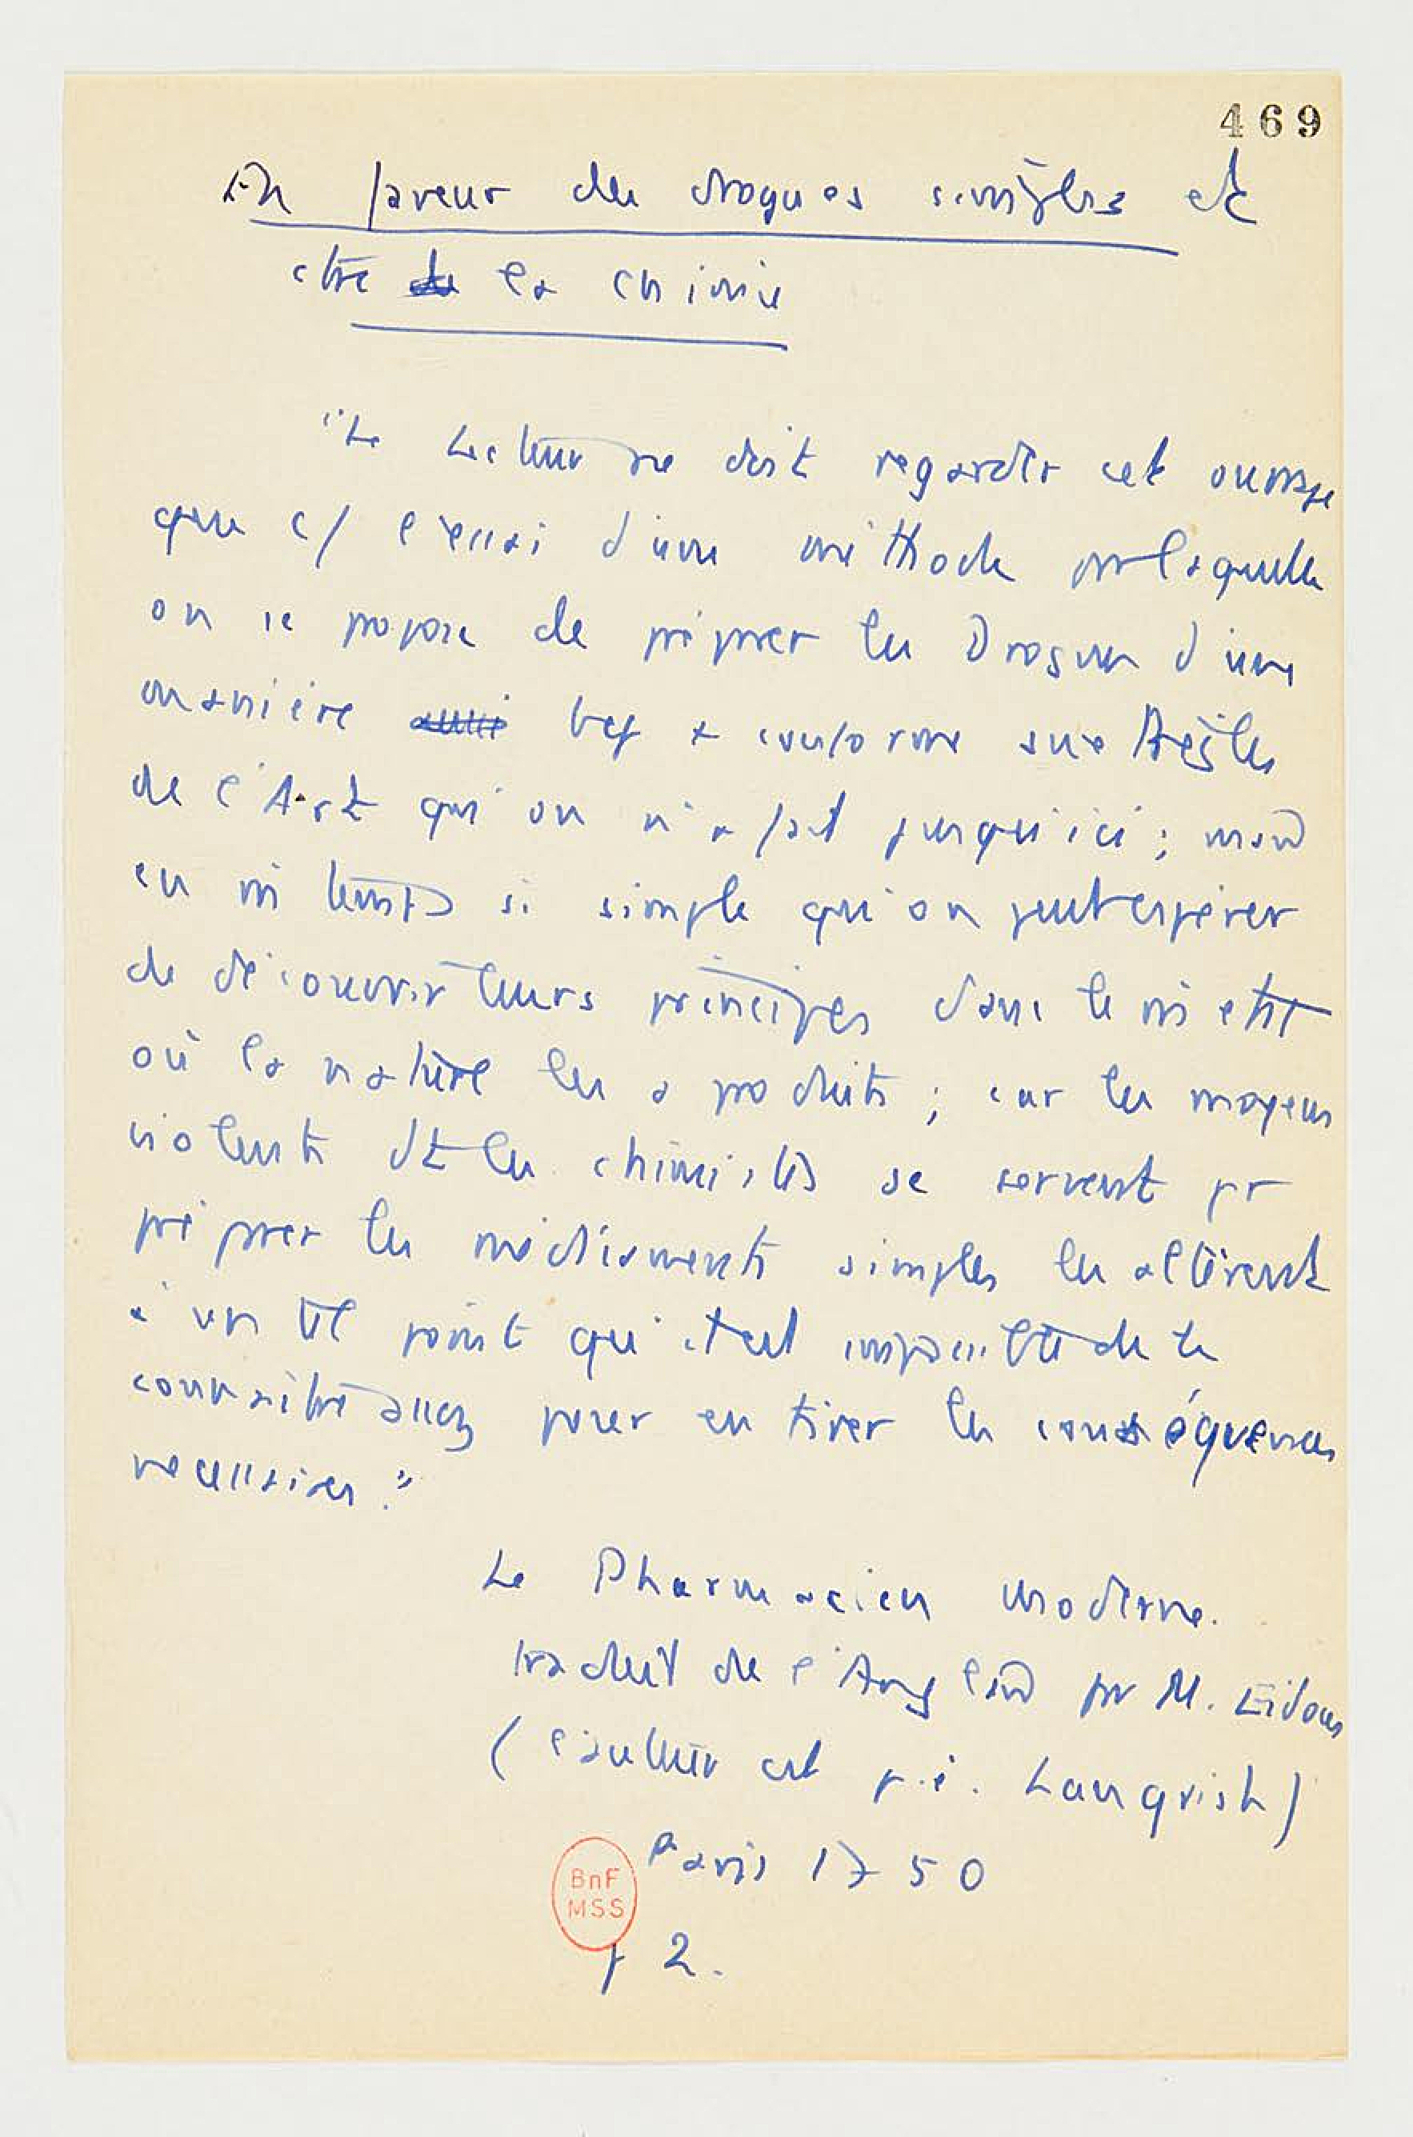 469
En faveur des drogues simples et
ctre la chimie
"Le Lecteur ne doit regarder cet ouvrage
que c/ l'essai d'une méthode par laquelle
on se propose de préparer les Drogues d'une
manière bcp + conforme aux Règles
de l'Art qu'on n'a fait jusqu'ici ; mais
en m temps si simple qu'on peut espérer
de découvrir leurs principes dans le m état
où la nature les a produits ; car les moyens
violents dt les chimistes se servent pr
préparer les médicaments simples les altèrent
à un tel point qu'il est impossible de le
connaître assez pour en tirer les conséquences
necessaires."
Le Pharmacien moderne.
traduit de l'Anglais par M. Eidous
(l'auteur est p.ê. Lanqrish)
Paris 1750
p 2.
BnF
MSS